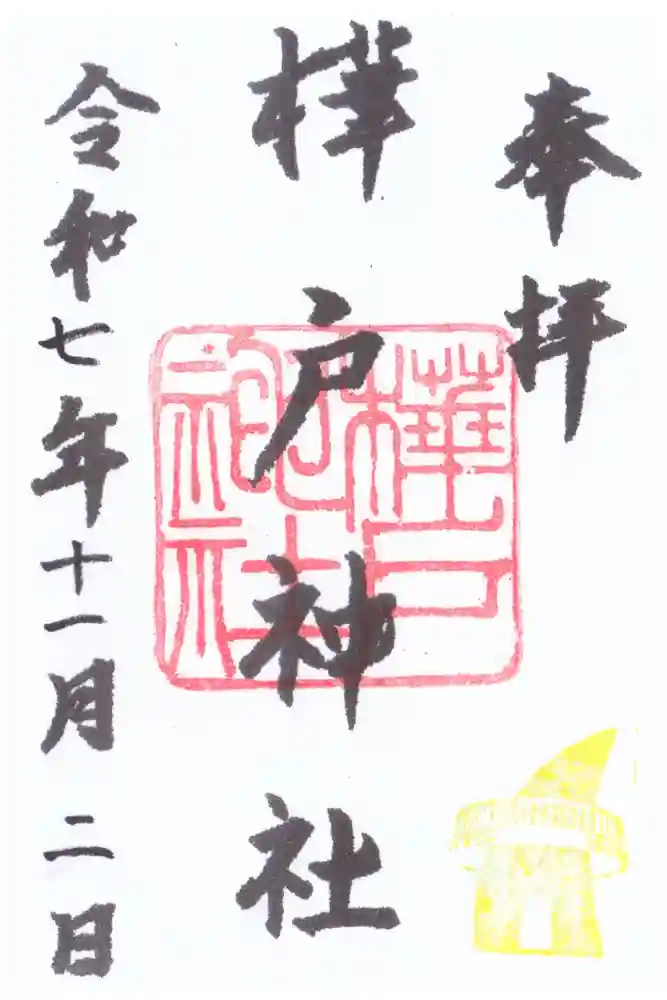 奉拝
樺戸神社
令和七年十一月二日
樺戸神社